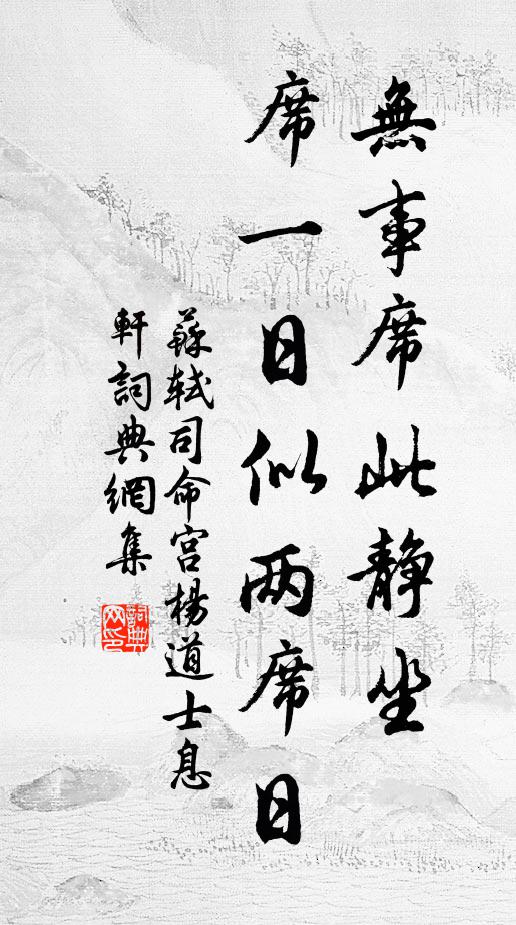 無事席此静坐
席一日似两席日
蘇軾司命宫楊道士息
軒詞典網集
詞典
网印